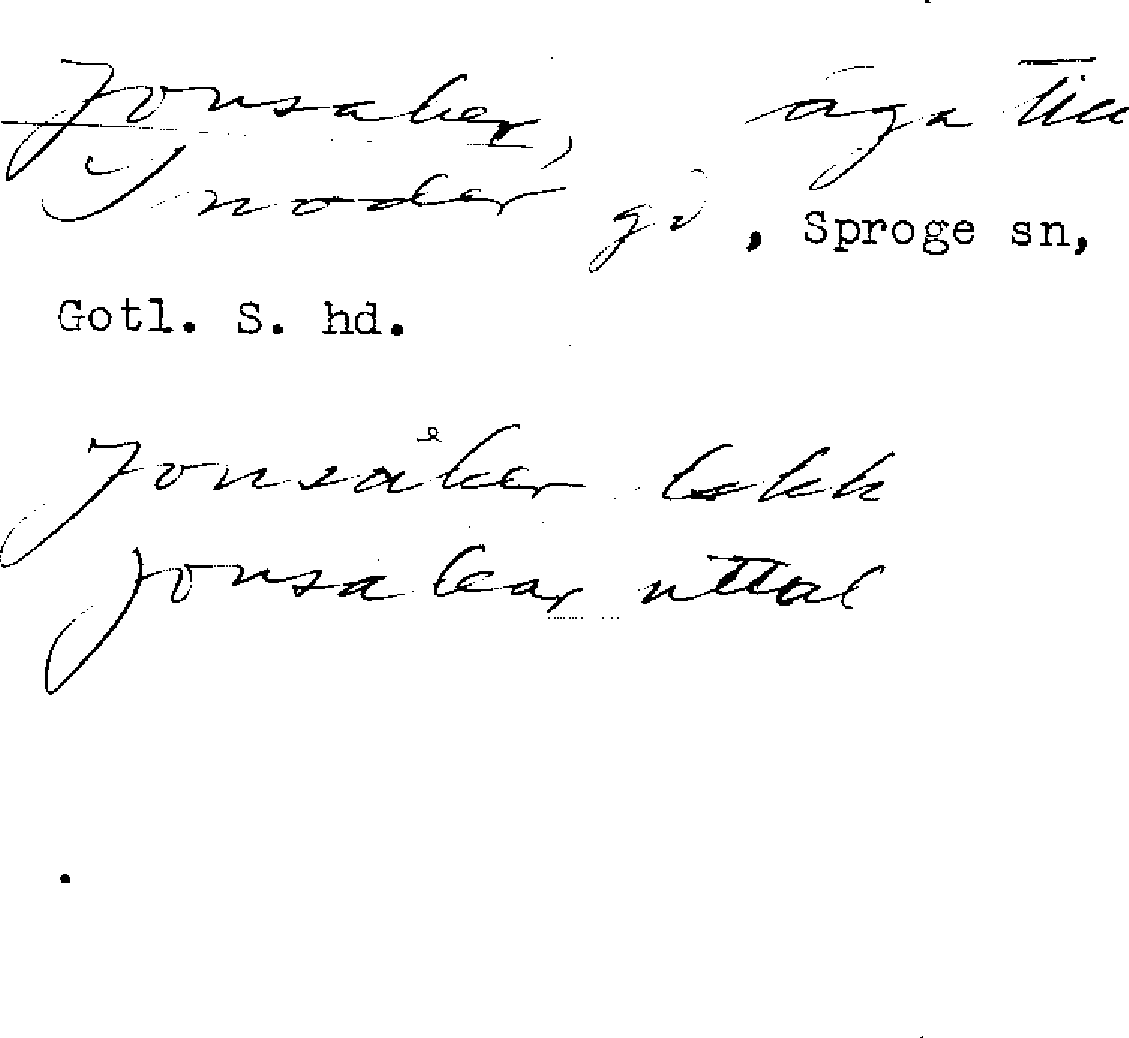 Jonsaker, äga till
Snoder gd, Sproge sn,
Gotl. S. hd.
Jonsåker lskk
Jonsakar uttal
.